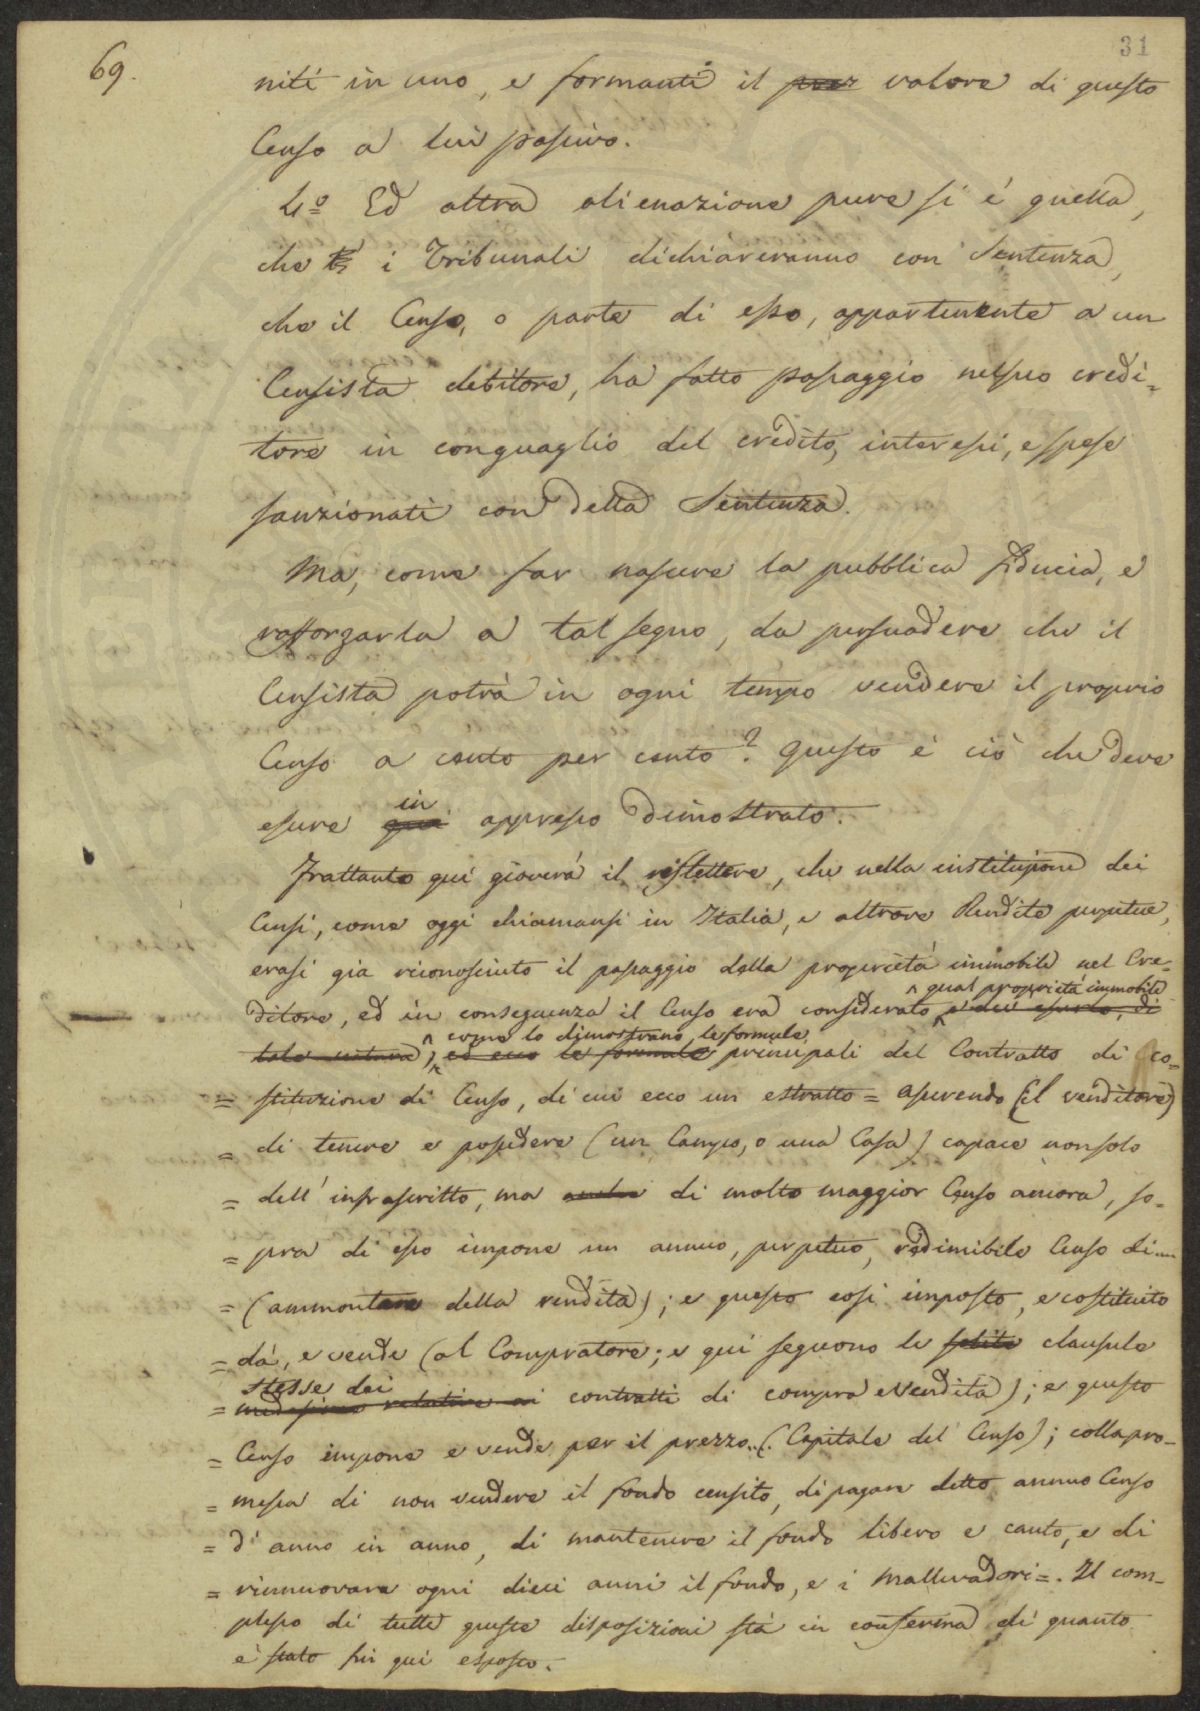 69.
31
niti in uno, e formanti il prez valore di questo
Censo a lui passivo.
4.º Ed altra alienazione pure si è quella,
che i Tribunali dichiareranno con Sentenza,
che il Censo, o parte di esso, appartenente a un
Censista debitore, ha fatto passaggio nel suo credi=
tore in conguaglio del credito, interessi, e spese
sanzionati con detta Sentenza.
Ma, come far nascere la pubblica fiducia, e
rafforzarla a tal segno, da persuadere che il
Censista potrà in ogni tempo vendere il proprio
Censo a cento per cento? Questo è ciò che deve
essere qui in appresso dimostrato.
Frattanto qui gioverà il riflettere, che nella instituzione dei
Censi, come oggi chiamansi in Italia, e altrove Rendite perpetue,
erasi già riconosciuto il passaggio della proprietà immobile nel Cre=
ditore, ed in conseguenza il Censo era considerato e dee esserlo, di
qual proprietà immobile
tale natura, ed ecco le formule principali del Contratto di co=
come lo dimostrano le formule
= stituzione di Censo, di cui ecco un estratto = asserendo (il venditore)
= di tenere e possedere (un Campo, o una Casa) capace non solo
= dell' infrascritto, ma anche di molto maggior Censo ancora, so=
= pra di esso impone un annuo, perpetuo, redimibile Censo di....
= (ammontare della rendita); e questo così imposto, e costituito
= dà, e vende (al Compratore; e qui seguono le solite clausule
stesse dei
= medesime relative ai contratti di compra e vendita); e questo
= Censo impone e vende per il prezzo... (Capitale del Censo); colla pro=
= messa di non vendere il fondo censito, di pagare detto annuo Censo
= d' anno in anno, di mantenere il fondo libero e cauto, e di
= rinnuovare ogni dieci anni il fondo, e i Mallevadori =. Il com=
plesso di tutte queste disposizioni stà in conferma di quanto
è stato fin qui esposto.